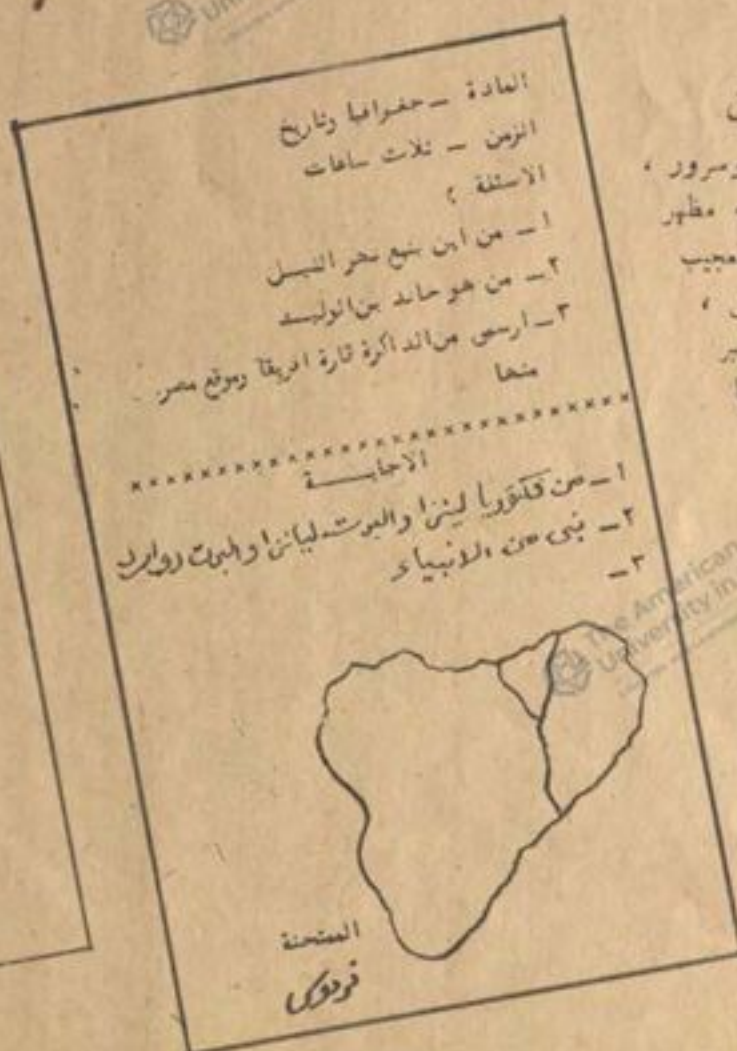 المادة – جغرافيا وتاريخ
الزمن – ثلاث ساعات
الاسئلة :
١ – من اين ينبع نهر النيل
٢ – من هو خالد بن الوليد
٣ – ارسمى من الذاكرة قارة افريقا وموقع مصر
منها
××××××××××××××××××××××××××××
الاجابة
١ – من فكتوريا لينزا والبرت ليانزا والبرت دوارد
٢ – نبى من الانبياء
٣ –
الممتحنة
فردوس
ومرور ،
مظهر
عجيب
The American
University in